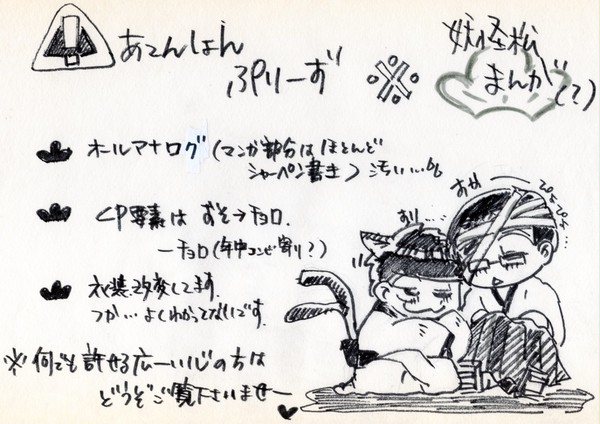 あてんしょん
ぷりーず
※
妖怪松
まんが(?)
オールアナログ(マンガ部分はほとんど
シャーペン書き) 汚い…
CP要素は おそ→チョロ
一チョロ(年中コンビ寄り?)
衣装改変してます。
つか… よくわかってないです。
※何でも許せる広ーい心の方は
どうぞご覧下さいませー